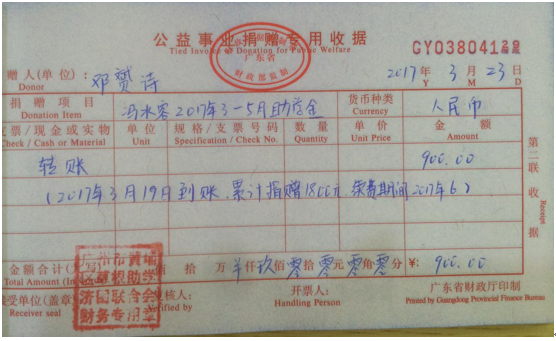 公益事业捐赠专用收据
Tied Invoice of Donation for Public Welfare
广东省
财政部监制
GY03804122
赠人(单位):邓赟诗
Donor
2017年 3月 23日
Y M D
捐赠项目 冯水容2017年3-5月助学金 货币种类 人民币
Donation Item Currency
支票/现金或实物 单位 规格/支票号码 数量 单价 金额
Check / Cash or Material Unit Specification / Check No. Quantity Unit Price Amount
转账 900.00
(2017年3月19日到账,累计捐赠1800元 续费期间2017年6)
第二联 收据 Receipt
金额合计(大写) 佰 拾 万 仟玖佰零拾零元零角零分 ¥: 900.00
Total Amount (In
广州市黄埔
区草根助学
济困联合会
财务专用章
接受单位(盖章) 复核人: 开票人: 广东省财政厅印制
Receiver seal Verified by Handling Person Printed by Guangdong Provincial Finance Bureau